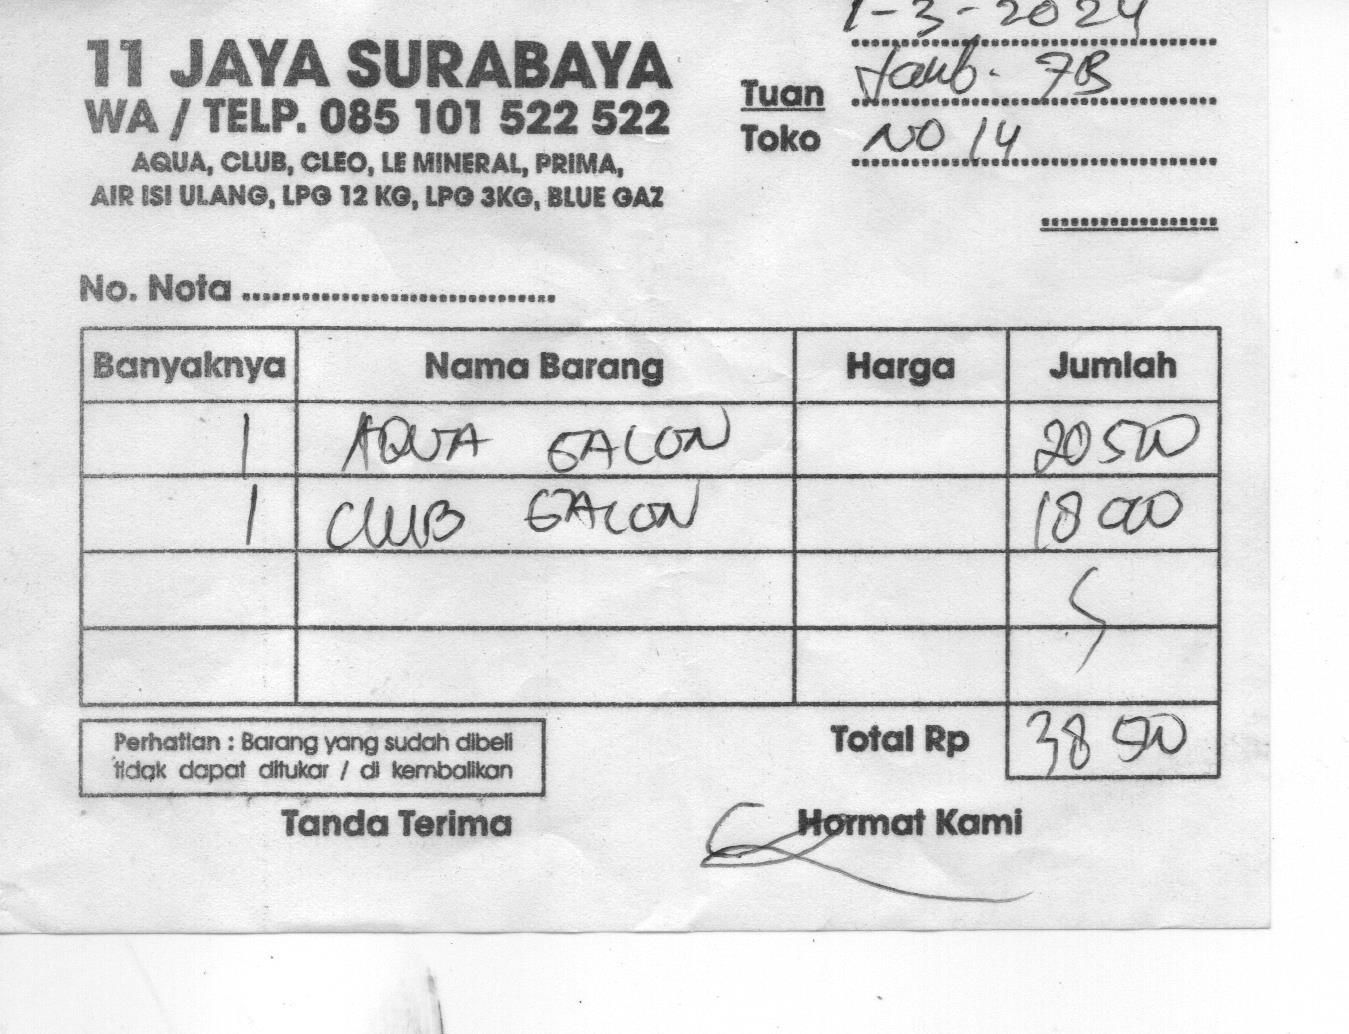 1-3-2024
11 JAYA SURABAYA
WA / TELP. 085 101 522 522
AQUA, CLUB, CLEO, LE MINERAL, PRIMA,
AIR ISI ULANG, LPG 12 KG, LPG 3KG, BLUE GAZ
Tuan 7B
Toko NO 14
No. Nota
Banyaknya Nama Barang Harga Jumlah
1 AQUA GALON 20500
1 CLUB GALON 18000
Total Rp 38500
Perhatian : Barang yang sudah dibeli
tidak dapat ditukar / di kembalikan
Tanda Terima Hormat Kami